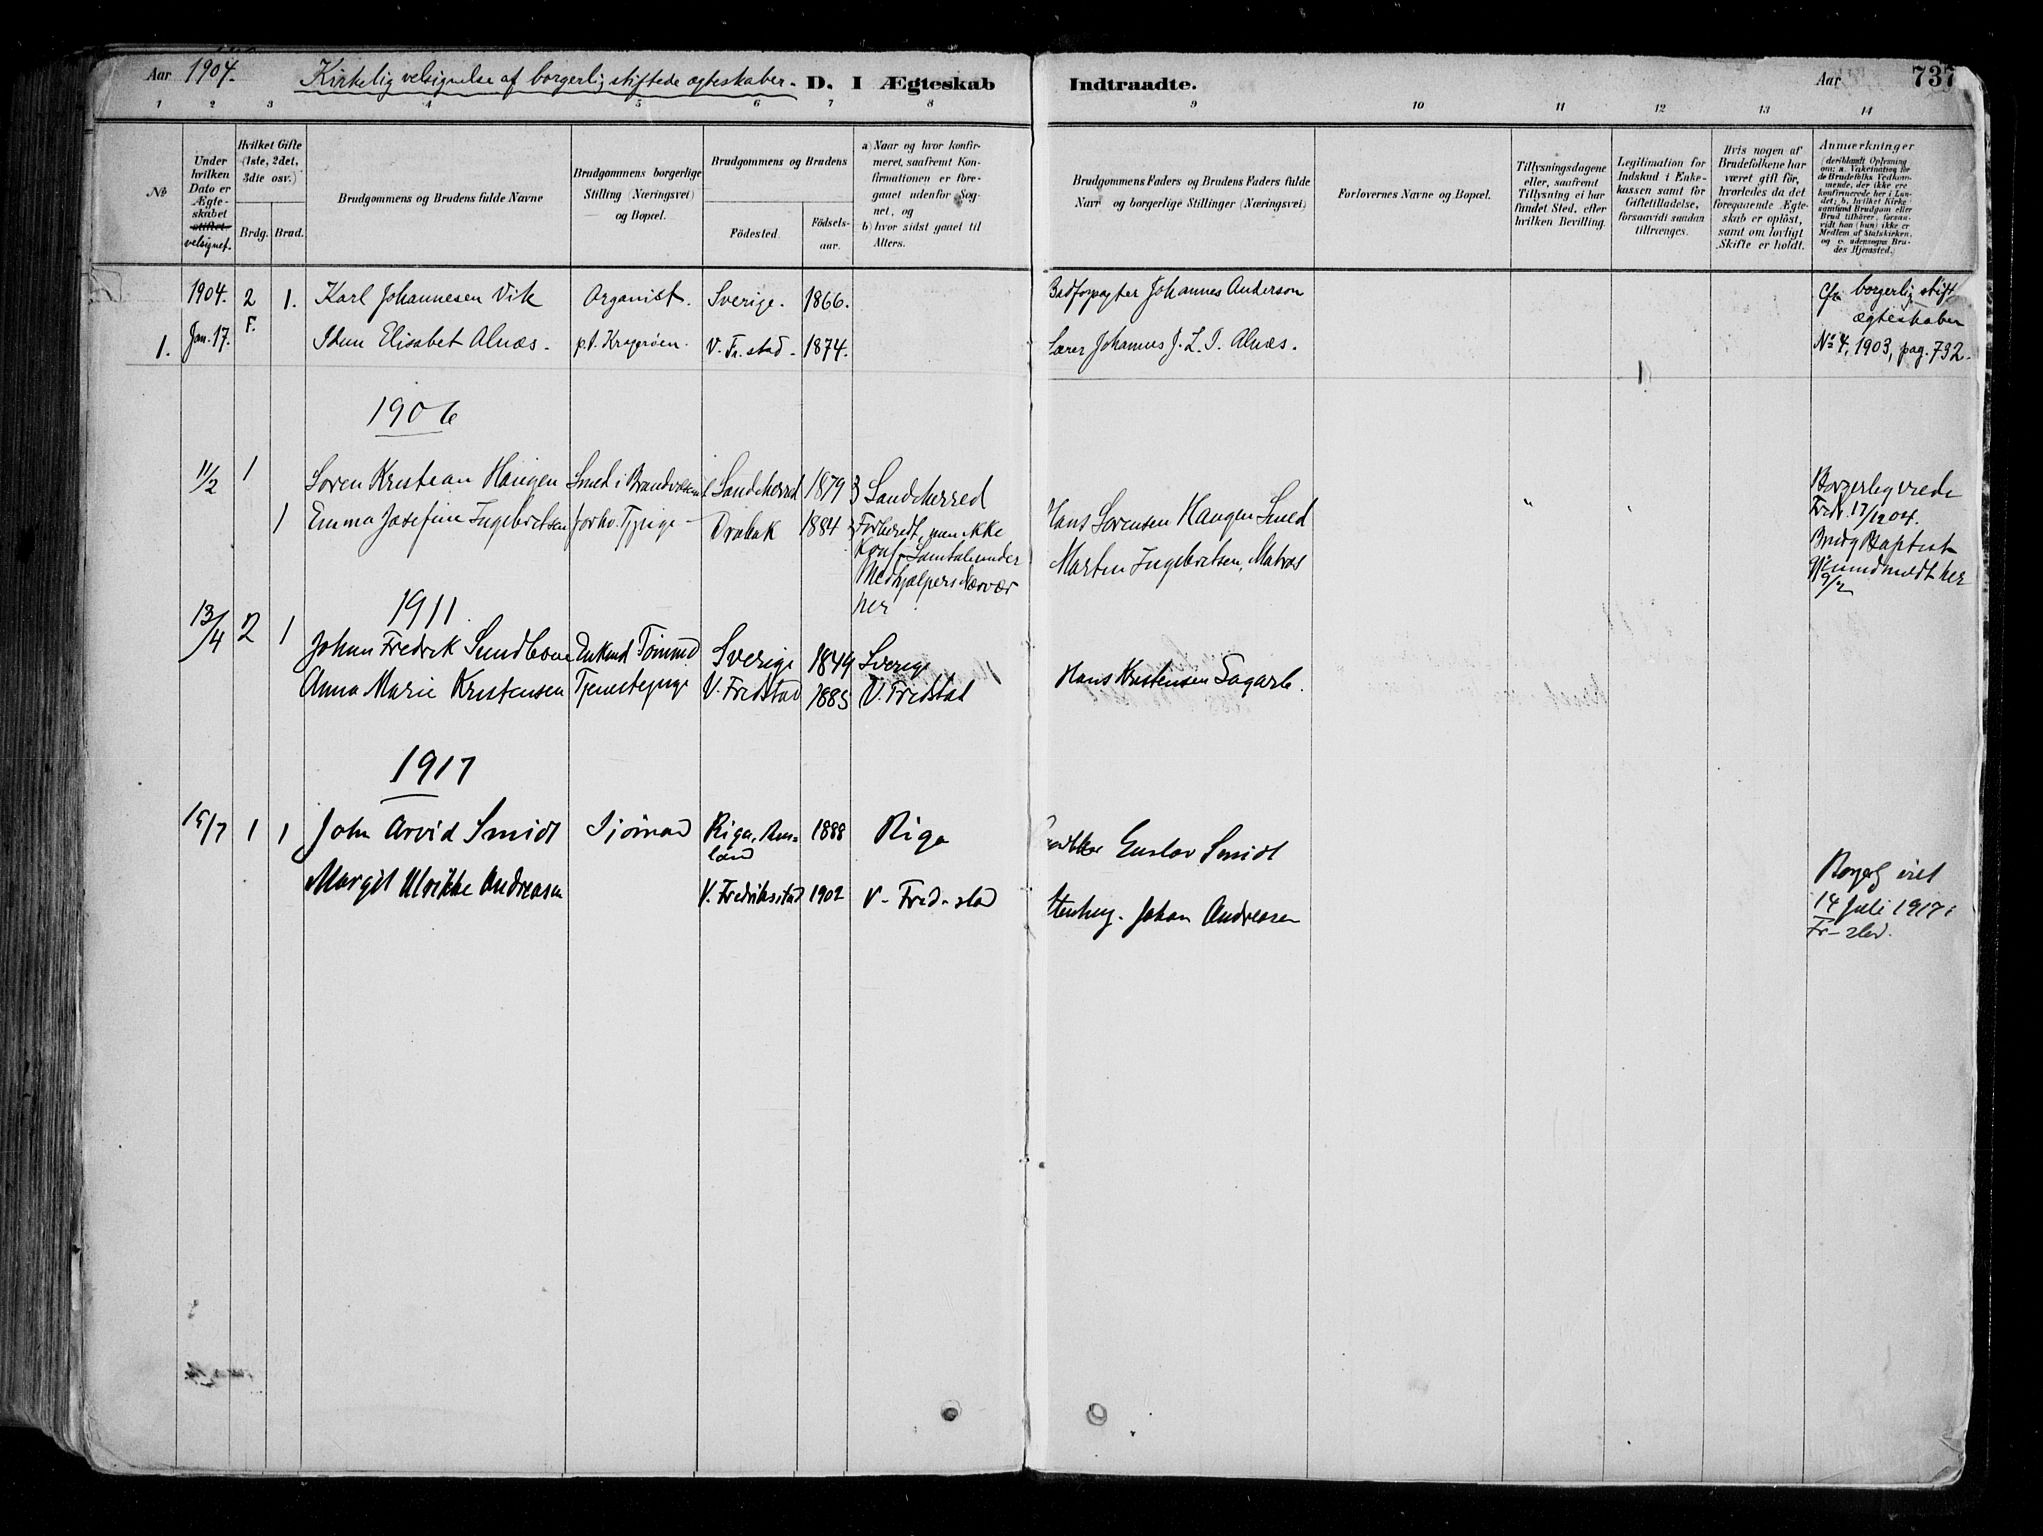 Aar 1904. Kirkelig velsignelse af borgerlig stiftede ægteskaber. D. I Ægteskab Indtraadte. Aar 737
1 2 3 4 5 6 7 8 9 10 11 12 13 14
No
Under hvilken Dato er Ægteskabet stiftet. velsignet.
Hvilket Gifte (1ste, 2det, 3die osv.)
Brdg. Brud.
Brudgommens og Brudens fulde Navne
Brudgommens borgerlige Stilling (Næringsvei) og Bopæl.
Brudgommens og Brudens
Fødested. Fødselsaar.
a) Naar og hvor konfirmeret, saafremt Konfirmationen er foregaaet udenfor Sognet, og
b) hvor sidst gaaet til Alters.
Brudgommens Faders og Brudens Faders fulde Navn og borgerlige Stillinger (Næringsvei)
Forlovernes Navne og Bopæl.
Tillysningsdagene eller, saafremt Tillysning ei har fundet Sted, efter hvilken Bevilling.
Legitimation for Indskud i Enkekassen samt for Giftetilladelse, forsaavidt saadan tiltrænges.
Hvis nogen af Brudefolkene har været gift før, hvorledes da det foregaaende Ægteskab er opløst, samt om lovligt Skifte er holdt.
Anmærkninger
(deriblandt Oplysning om: a. Vakcination for de Brudefolks Vedkommende, der ikke ere konfirmerede her i Landet; b. hvilket Kirkesamfund Brudgom eller Brud tilhører, forsaavidt han (hun) ikke er Medlem af Statskirken, og c. udensogns Brudes Hjemsted.)
1904. 2 1. Karl Johannesen Vik Organist. Sverige. 1866. Johannes Anderson Cfr. borgerlig stift. ægteskaber
1. Jan. 17. F. Idun Elisabet Alnæs. p.t. Kragerøen. V. Fr.stad. 1874. Lærer Johannes J. L. I. Alnæs. No 4, 1903, pag. 732.
1906
11/2 1 Søren Kristian Haugen Smed i Sandeherred 1879 Sandeherred Hans Sørensen Haugen Smed
1 Emma Josefine Ingebretsen forhv. Tjpige Drøbak 1884 Forberedt, men ikke Konf. Samtale under Medhjælpers Nærvær her Martin Ingebretsen, Matros
Borgerlig viede Fredr. 17/12 04.
Brudg Baptist
9/2
1911
13/4 2 1 Johan Fredrik Enkemd Tømmd Sverige 1849 Sverige
Anna Marie Kristensen Tjenestepige V. Fredstad 1885 V. Fredstad Hans Kristensen
1917
15/7 1 1 John Arvid Smidt Sjømand Riga, Rusland 1888 Riga Gustav Smidt
Margit Ulrikke Andreasen V. Fredriksstad 1902 V. Fred.stad Stenhug. Johan Andreasen
Borgerlig viet
14 juli 1917 i
Fr-stad.